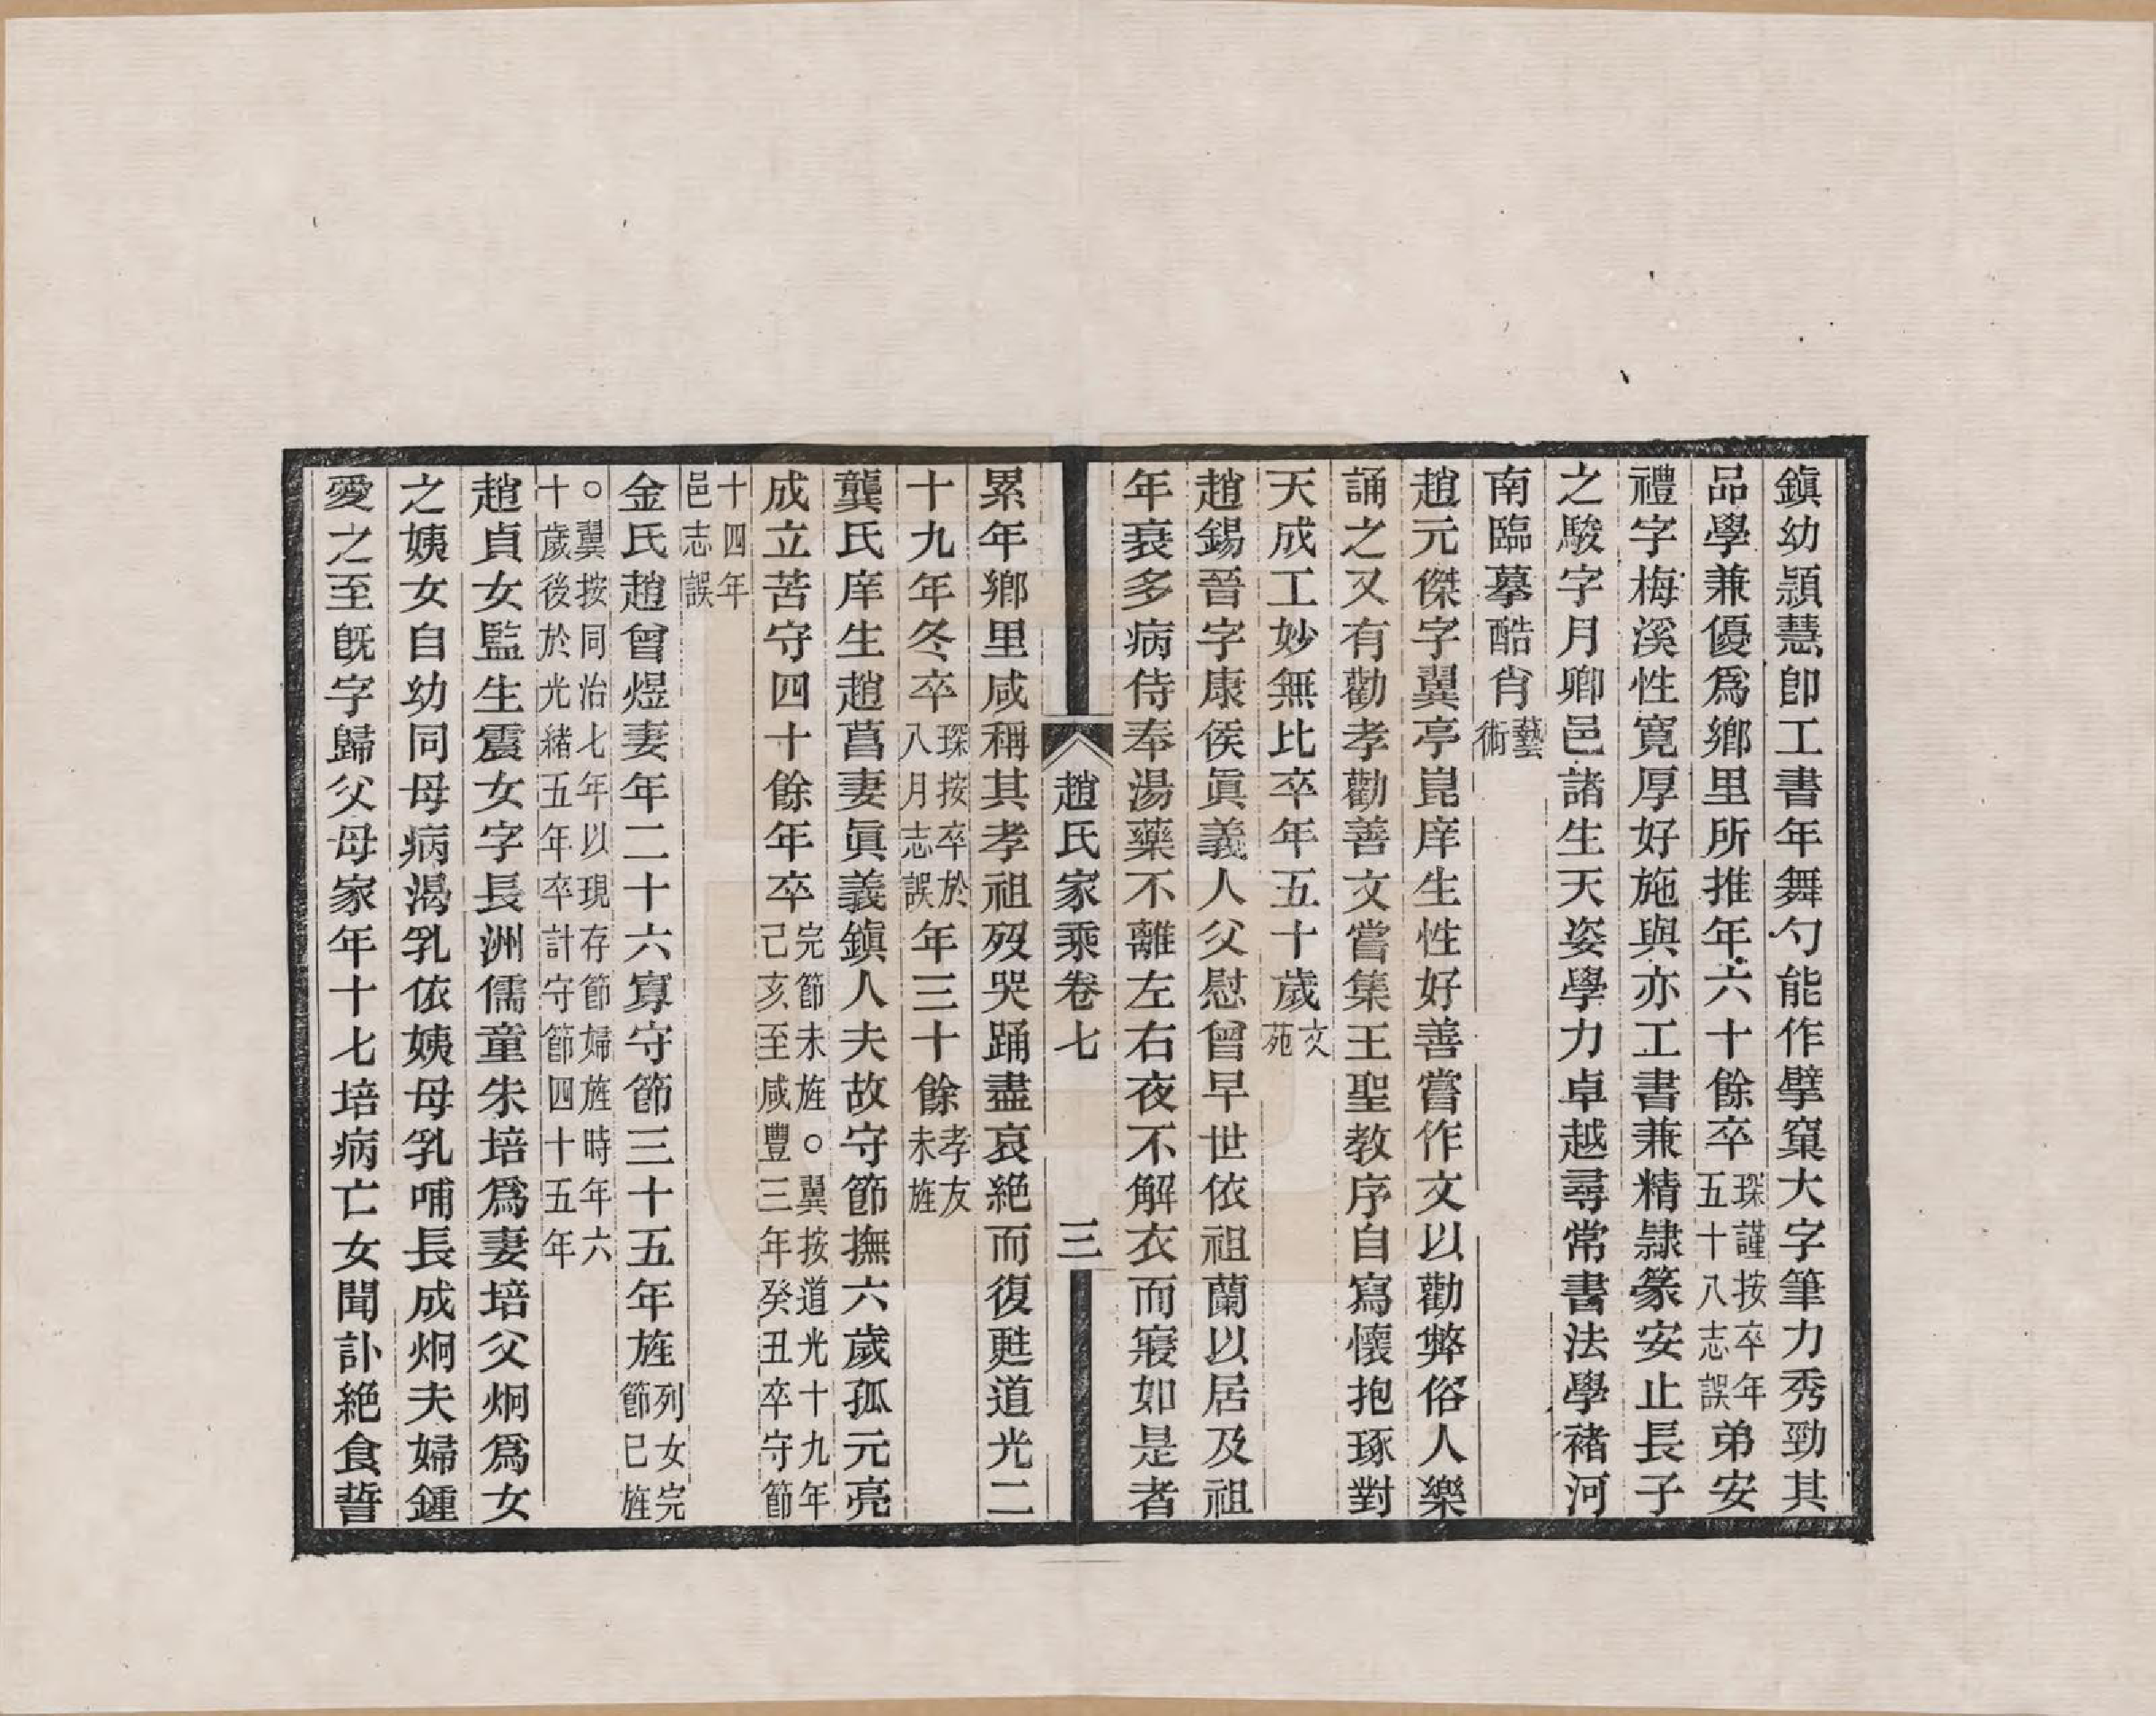 鎭幼潁慧卽工書年舞勺能作擘窠大字筆力秀勁其
品學兼優爲鄉里所推年六十餘卒琛謹按卒年五十八志誤弟安
禮字梅溪性寬厚好施與亦工書兼精隷篆安止長子
之駿字月卿邑諸生天姿學力卓越尋常書法學褚河
南臨摹酷肖藝術
趙元傑字翼亭崑庠生性好善嘗作文以勸弊俗人樂
誦之又有勸孝勸善文嘗集王聖教序自寫懷抱琢對
天成工妙無比卒年五十歲文苑
趙錫晉字康侯眞義人父慰曾早世依祖蘭以居及祖
年衰多病侍奉湯藥不離左右夜不解衣而寢如是者
趙氏家乘卷七 三
累年鄉里咸稱其孝祖歿哭踊盡哀絕而復甦道光二
十九年冬卒琛按卒於八月志誤年三十餘孝友未旌
龔氏庠生趙菖妻眞義鎭人夫故守節撫六歲孤元亮
成立苦守四十餘年卒完節未旌○翼按道光十九年己亥至咸豐三年癸丑卒守節
十四年邑志誤
金氏趙曾煜妻年二十六寡守節三十五年旌列女完節已旌
○翼按同治七年以現存節婦旌時年六十歲後於光緒五年卒計守節四十五年
趙貞女監生震女字長洲儒童朱培爲妻培父炯爲女
之姨女自幼同母病渴乳依姨母乳哺長成炯夫婦鍾
愛之至旣字歸父母家年十七培病亡女聞訃絕食誓